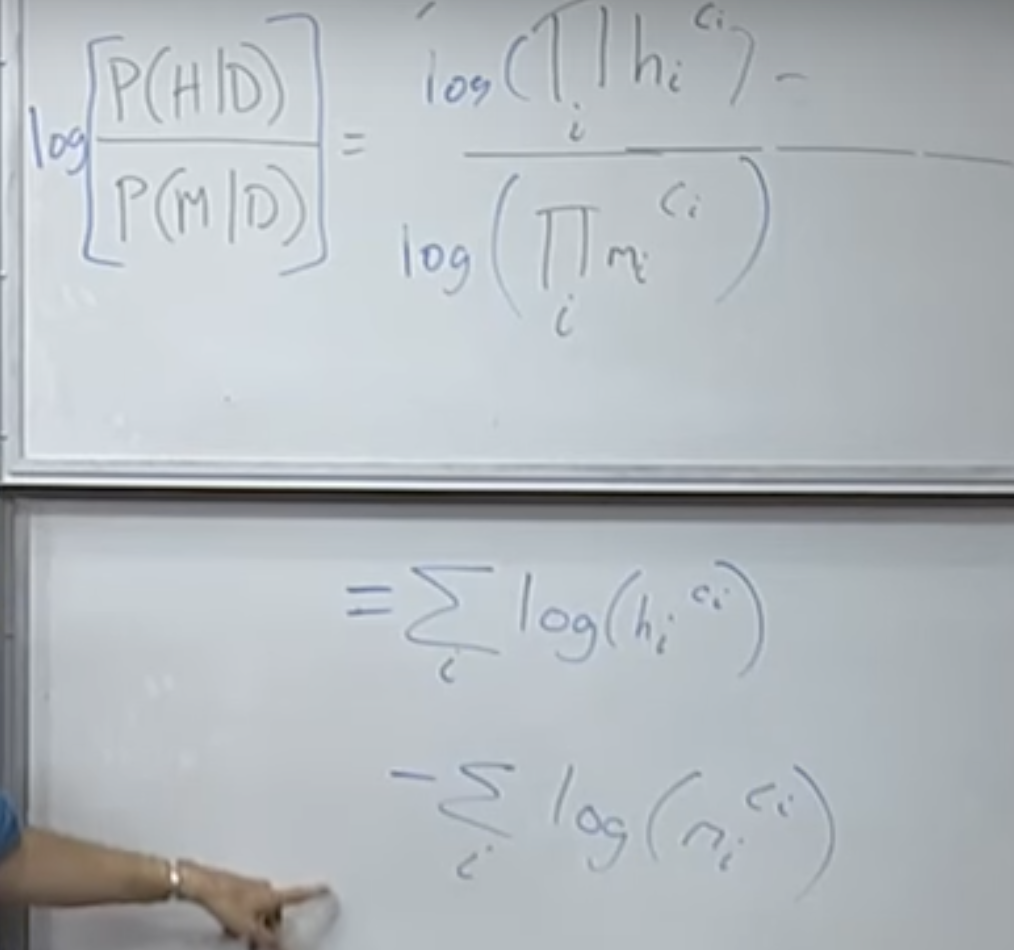 log[P(H|D) / P(M|D)] = log(∏_i h_i^{c_i}) - / log(∏_i m_i^{c_i})
= ∑_i log(h_i^{c_i})
- ∑_i log(m_i^{c_i})